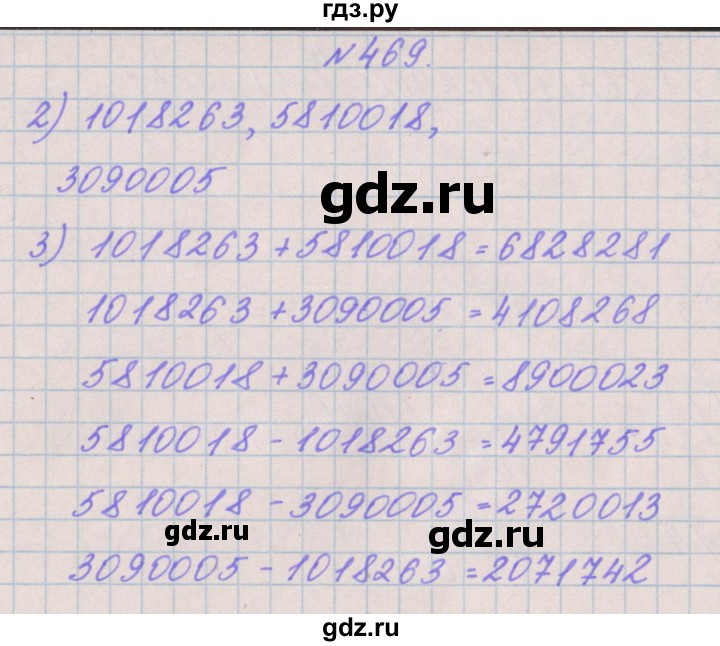 гдз.ру
№469.
2) 1018263, 5810018,
3090005
gdz.ru
3) 1018263+5810018=6828281
1018263+3090005=4108268
5810018+3090005=8900023
5810018-1018263=4791755
5810018-3090005=2720013
gdz.ru
gdz.ru
3090005-1018263=2071742
gdz.ru